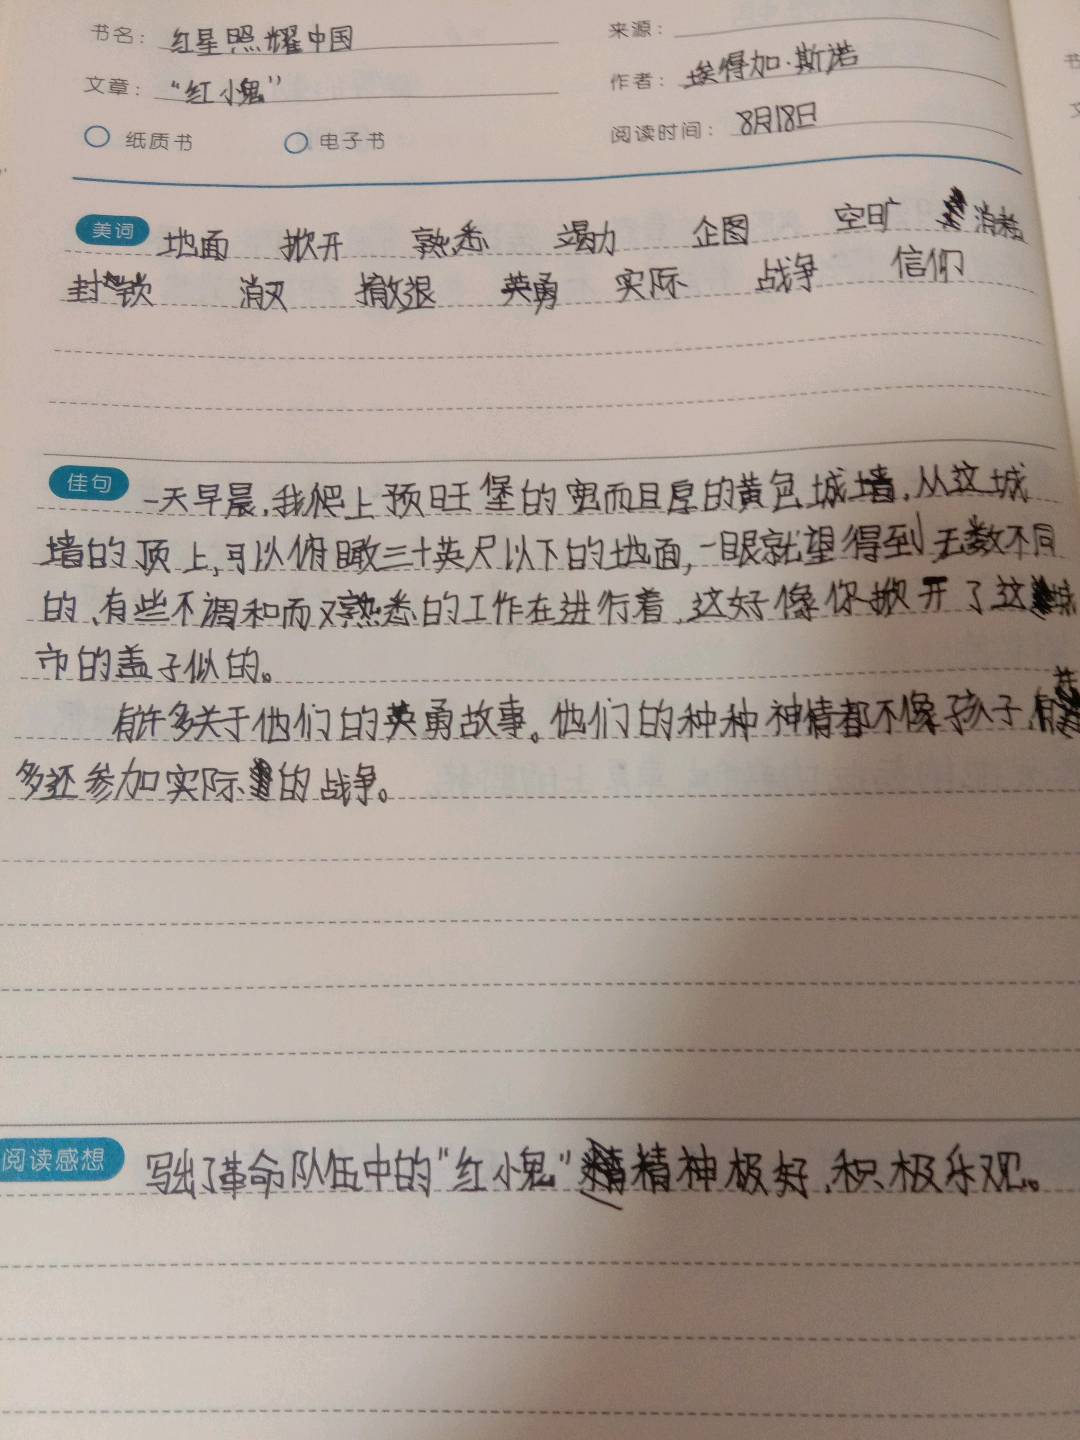 书名： 红星照耀中国 来源：
文章： “红小鬼” 作者： 埃得加·斯诺
纸质书 电子书 阅读时间： 8月18日
美词 地面 掀开 熟悉 竭力 企图 空旷 消耗
封锁 消灭 撤退 英勇 实际 战争 信仰
佳句 一天早晨，我爬上预旺堡的宽而且厚的黄色城墙，从这城
墙的顶上，可以俯瞰三十英尺以下的地面，一眼就望得到无数不同
的、有些不调和而又熟悉的工作在进行着，这好像你掀开了这城
市的盖子似的。
有许多关于他们的英勇故事。他们的种种神情都不像孩子，
多还参加实际的战争。
阅读感想 写出了革命队伍中的“红小鬼”精神极好，积极乐观。